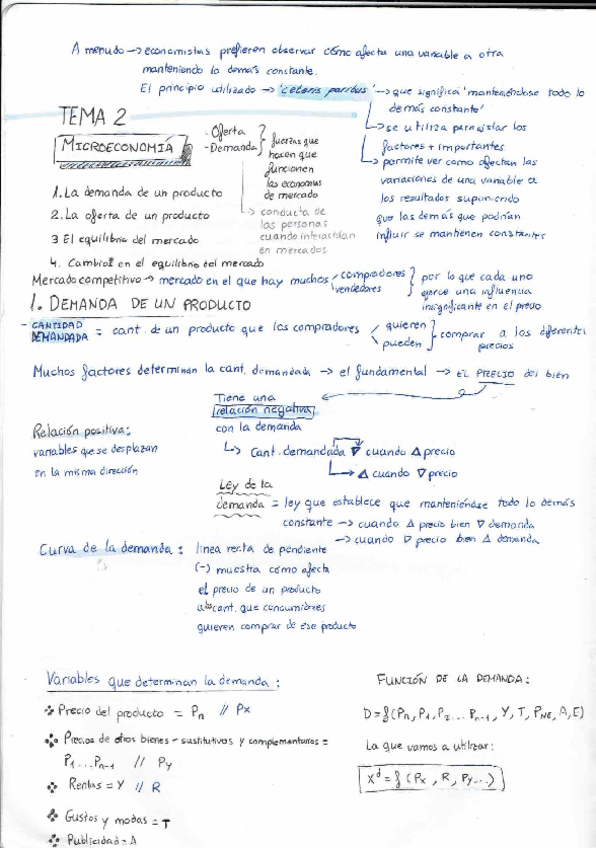 A menudo → economistas prefieren observar cómo afecta una variable a otra
manteniendo lo demás constante.
El principio utilizado → 'ceteris paribus' → que significa 'manteniéndose todo lo
demás constante'
→ se utiliza para aislar los
factores + importantes
→ permite ver como afectan las
variaciones de una variable a
los resultados suponiendo
que las demás que podrían
influir se mantienen constantes
TEMA 2
MICROECONOMÍA
- Oferta
- Demanda
fuerzas que
hacen que
funcionen
las economías
de mercado
→ conducta de
las personas
cuando interactúan
en mercados
1. La demanda de un producto
2. La oferta de un producto
3 El equilibrio del mercado
4. Cambios en el equilibrio del mercado
Mercado competitivo → mercado en el que hay muchos compradores
vendedores
por lo que cada uno
ejerce una influencia
insignificante en el precio
1. DEMANDA DE UN PRODUCTO
- CANTIDAD
DEMANDADA = cant. de un producto que los compradores quieren
pueden
comprar a los diferentes
precios
Muchos factores determinan la cant. demandada → el fundamental → EL PRECIO del bien
Tiene una
relación negativa
con la demanda
↳ Cant. demandada ∇ cuando Δ precio
→ Δ cuando ∇ precio
Relación positiva:
variables que se desplazan
en la misma dirección
Ley de la
demanda = ley que establece que manteniéndose todo lo demás
constante → cuando Δ precio bien ∇ demanda
→ cuando ∇ precio bien Δ demanda
Curva de la demanda: línea recta de pendiente
(-) muestra cómo afecta
el precio de un producto
a la cant. que consumidores
quieren comprar de ese producto
Variables que determinan la demanda:
Precio del producto = Pn // Px
Precios de otros bienes - sustitutivos y complementarios =
P1 ... Pn-1 // Py
Rentas = Y // R
Gustos y modas = T
Publicidad = A
FUNCIÓN DE LA DEMANDA:
D = f (Pn, P1, P2 ... Pn-1, Y, T, PNE, A, E)
La que vamos a utilizar:
Xd = f (Px, R, Py...)